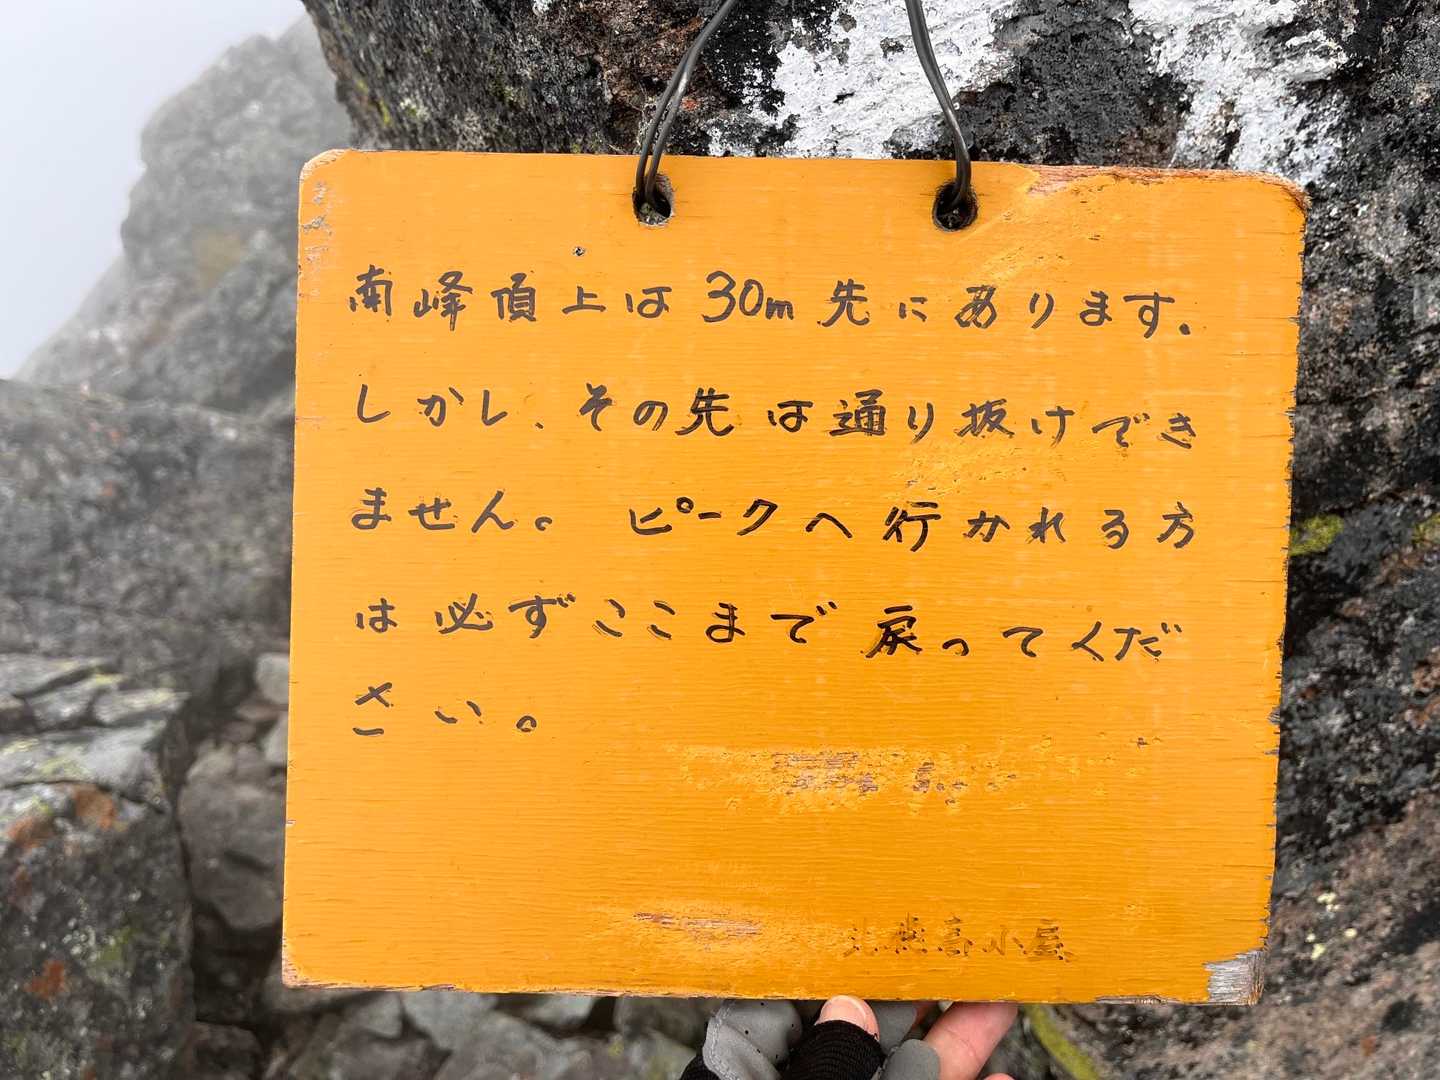 南峰頂上は30m先にあります。
しかし、その先は通り抜けでき
ません。ピークへ行かれる方
は必ずここまで戻ってくだ
さい。
北穂高小屋